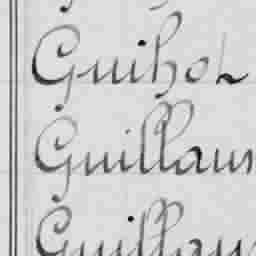 Guihot
Guillaum
Guillau